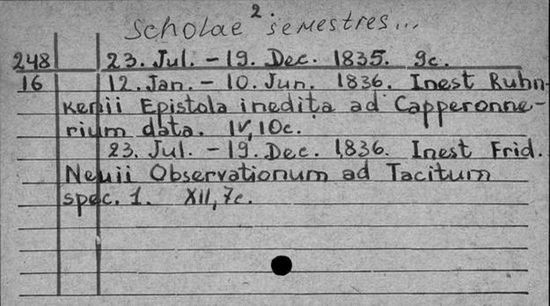 2.
Scholae semestres...
248 23. Jul. - 19. Dec. 1835. 9c.
16 12. Jan. - 10. Jun. 1836. Inest Ruhn-
kenii Epistola inedita ad Capperonne-
rium data. IV, 10c.
23. Jul. - 19. Dec. 1836. Inest Frid.
Neuii Observationum ad Tacitum
spec. 1. XII, 7c.